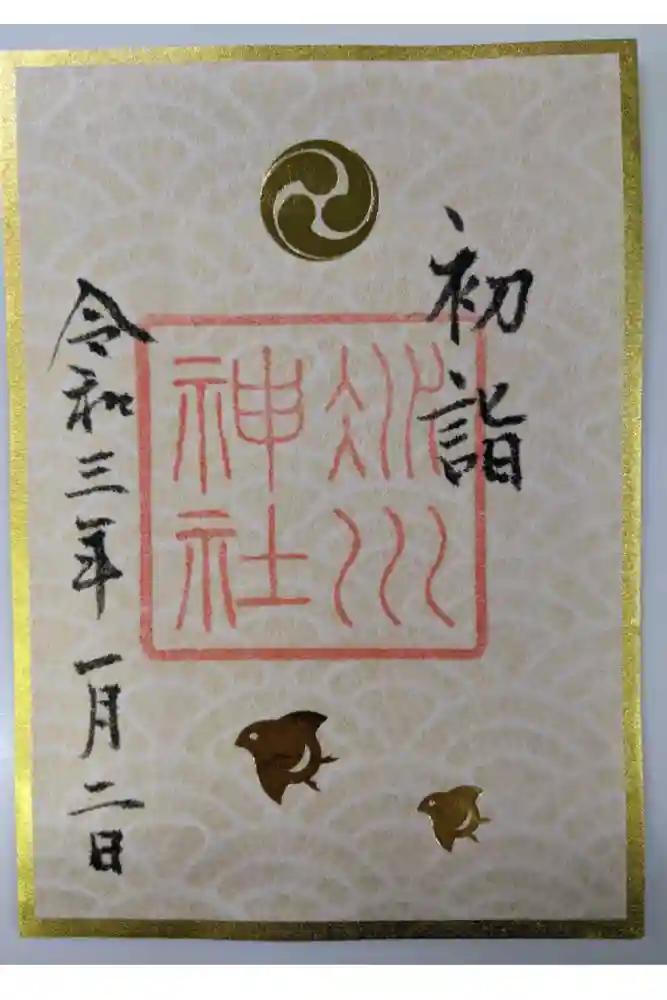 初詣
冰川
神社
令和三年一月二日